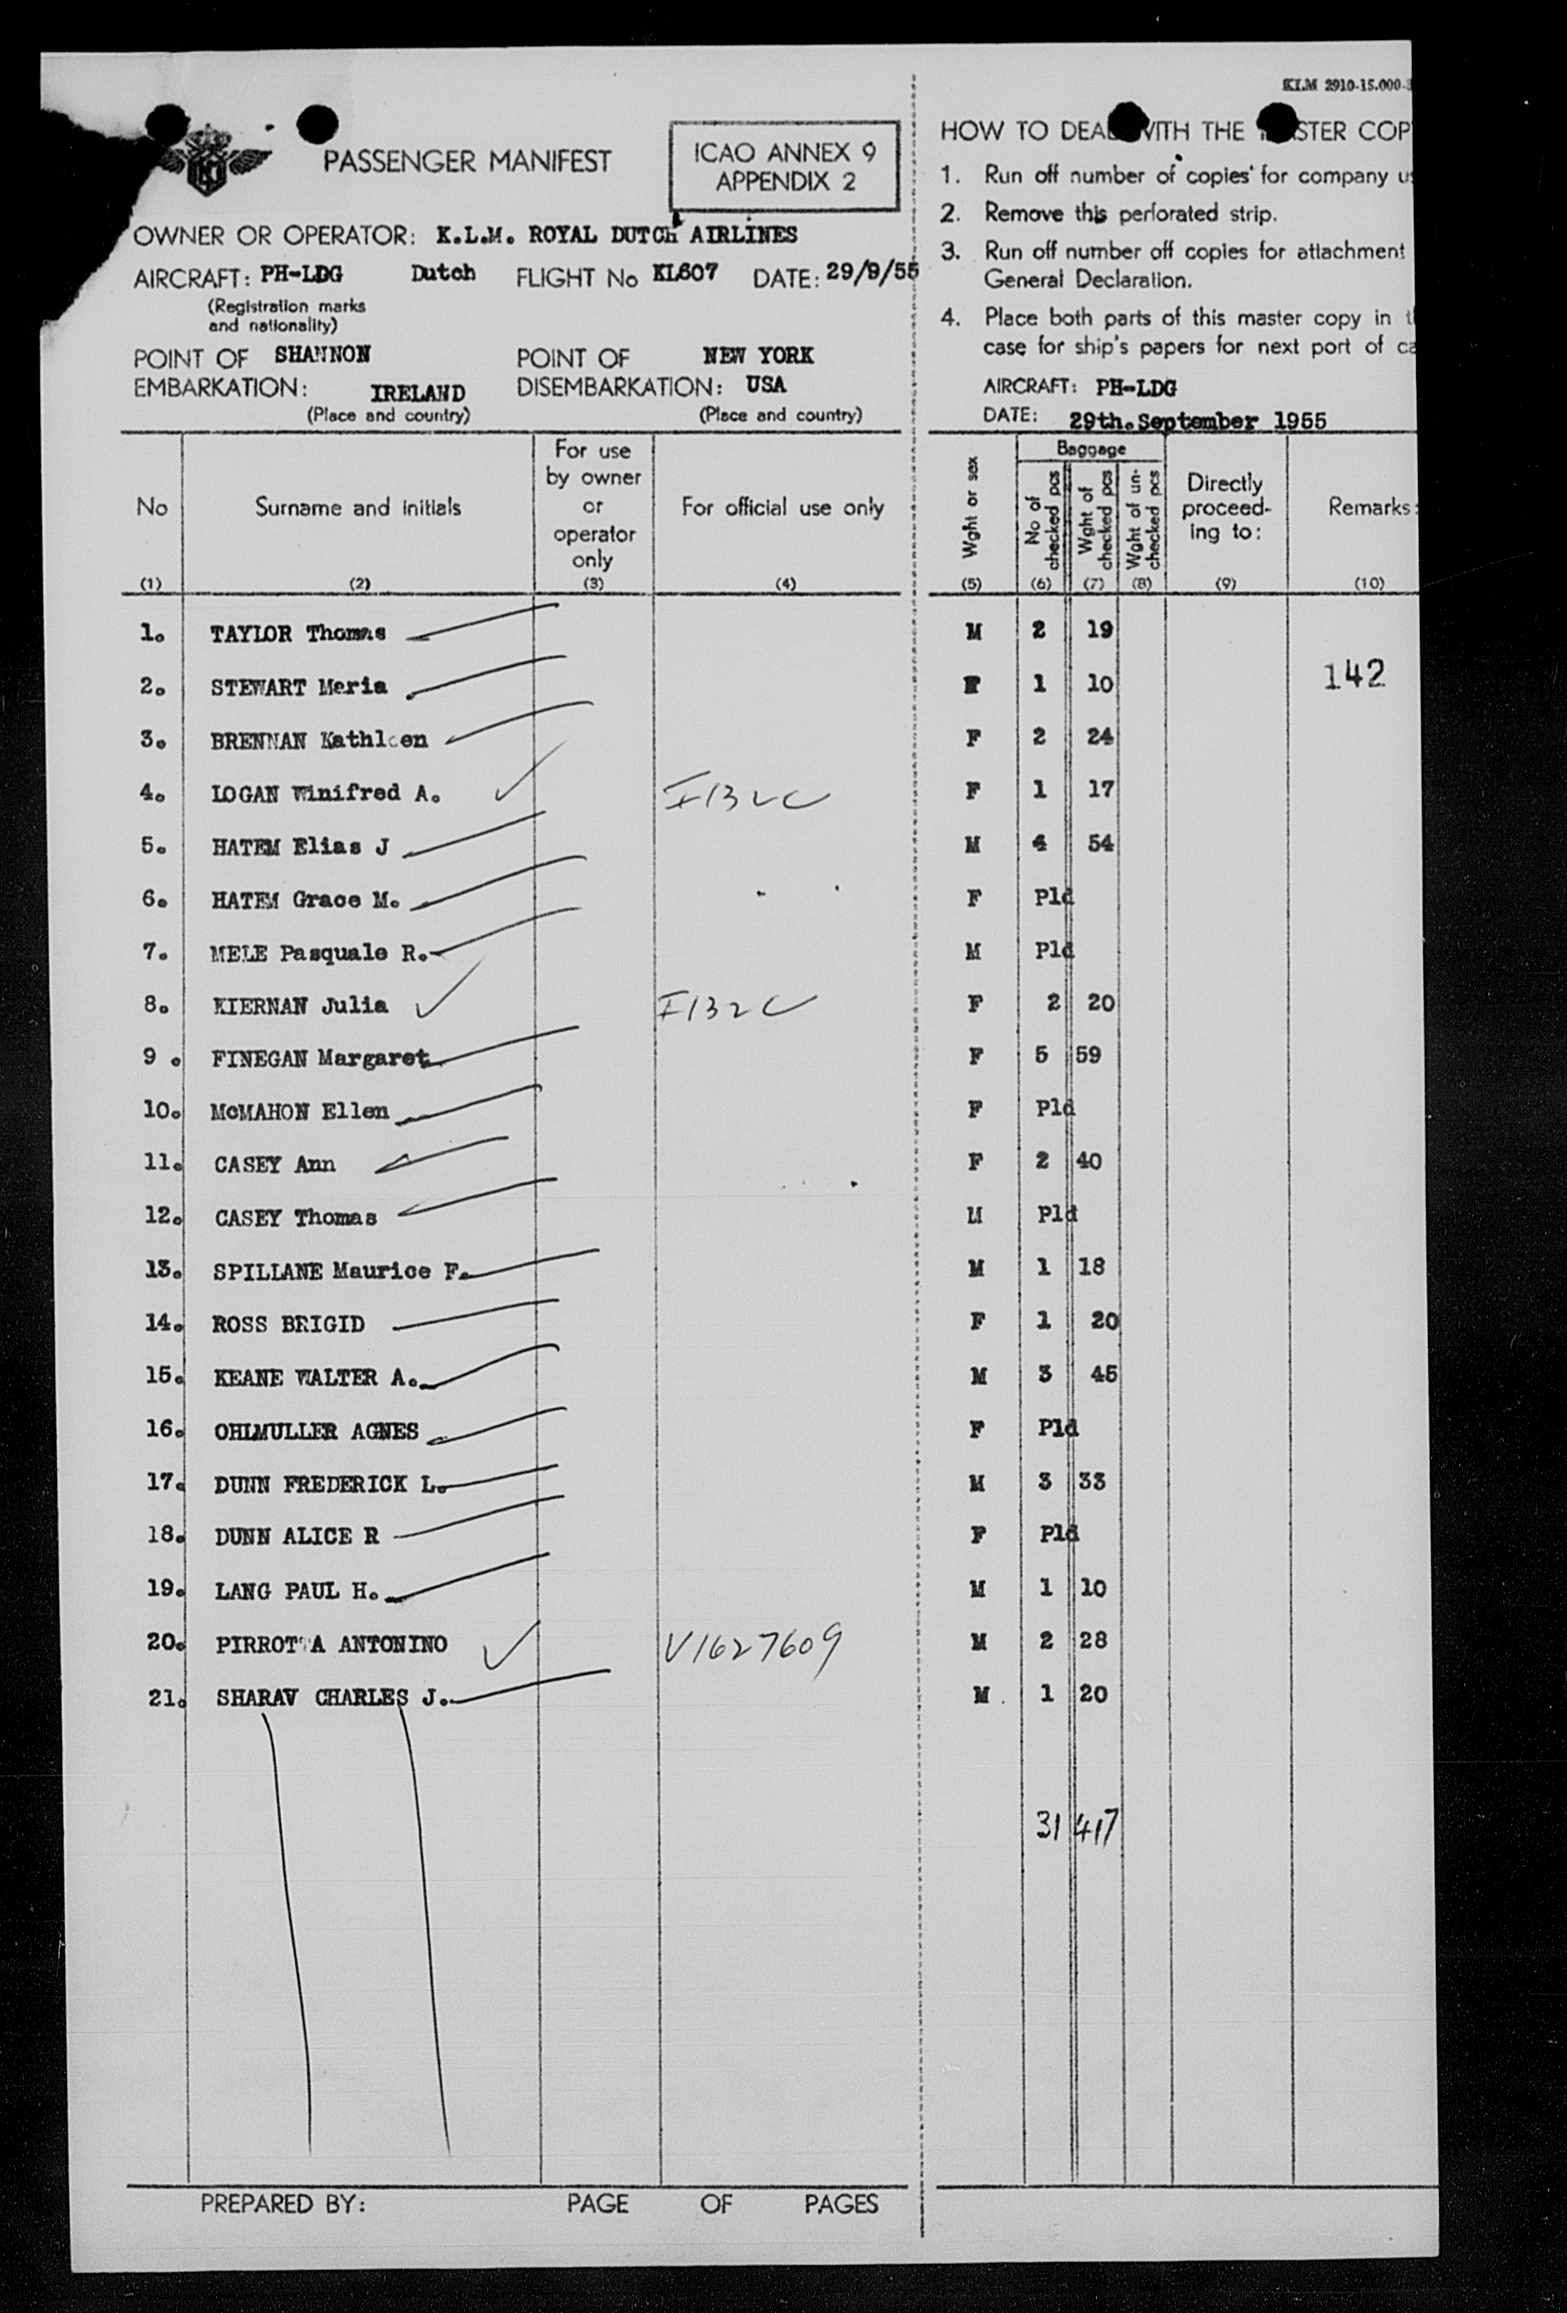 KLM 2910-15.000-
PASSENGER MANIFEST
ICAO ANNEX 9
APPENDIX 2
OWNER OR OPERATOR: K.L.M. ROYAL DUTCH AIRLINES
AIRCRAFT: PH-LDG Dutch FLIGHT No KL607 DATE: 29/9/55
(Registration marks
and nationality)
POINT OF SHANNON POINT OF NEW YORK
EMBARKATION: IRELAND DISEMBARKATION: USA
(Place and country) (Place and country)
HOW TO DEAL WITH THE MASTER COP
1. Run off number of copies for company u
2. Remove this perforated strip.
3. Run off number off copies for attachment
General Declaration.
4. Place both parts of this master copy in t
case for ship's papers for next port of ca
AIRCRAFT: PH-LDG
DATE: 29th.September 1955
No Surname and initials For use by owner or operator only For official use only Wght or sex Baggage No of checked pcs Wght of checked pcs Wght of un-checked pcs Directly proceed-ing to: Remarks:
(1) (2) (3) (4) (5) (6) (7) (8) (9) (10)
1. TAYLOR Thomas M 2 19
2. STEWART Maria F 1 10 142
3. BRENNAN Kathleen F 2 24
4. LOGAN Winifred A. I132C F 1 17
5. HATEM Elias J M 4 54
6. HATEM Grace M. F Pld
7. MELE Pasquale R. M Pld
8. KIERNAN Julia I132C F 2 20
9. FINEGAN Margaret F 5 59
10. McMAHON Ellen F Pld
11. CASEY Ann F 2 40
12. CASEY Thomas M Pld
13. SPILLANE Maurice F. M 1 18
14. ROSS BRIGID F 1 20
15. KEANE WALTER A. M 3 45
16. OHLMULLER AGNES F Pld
17. DUNN FREDERICK L. M 3 33
18. DUNN ALICE R F Pld
19. LANG PAUL H. M 1 10
20. PIRROTTA ANTONINO V1627609 M 2 28
21. SHARAV CHARLES J. M 1 20
31 417
PREPARED BY: PAGE OF PAGES